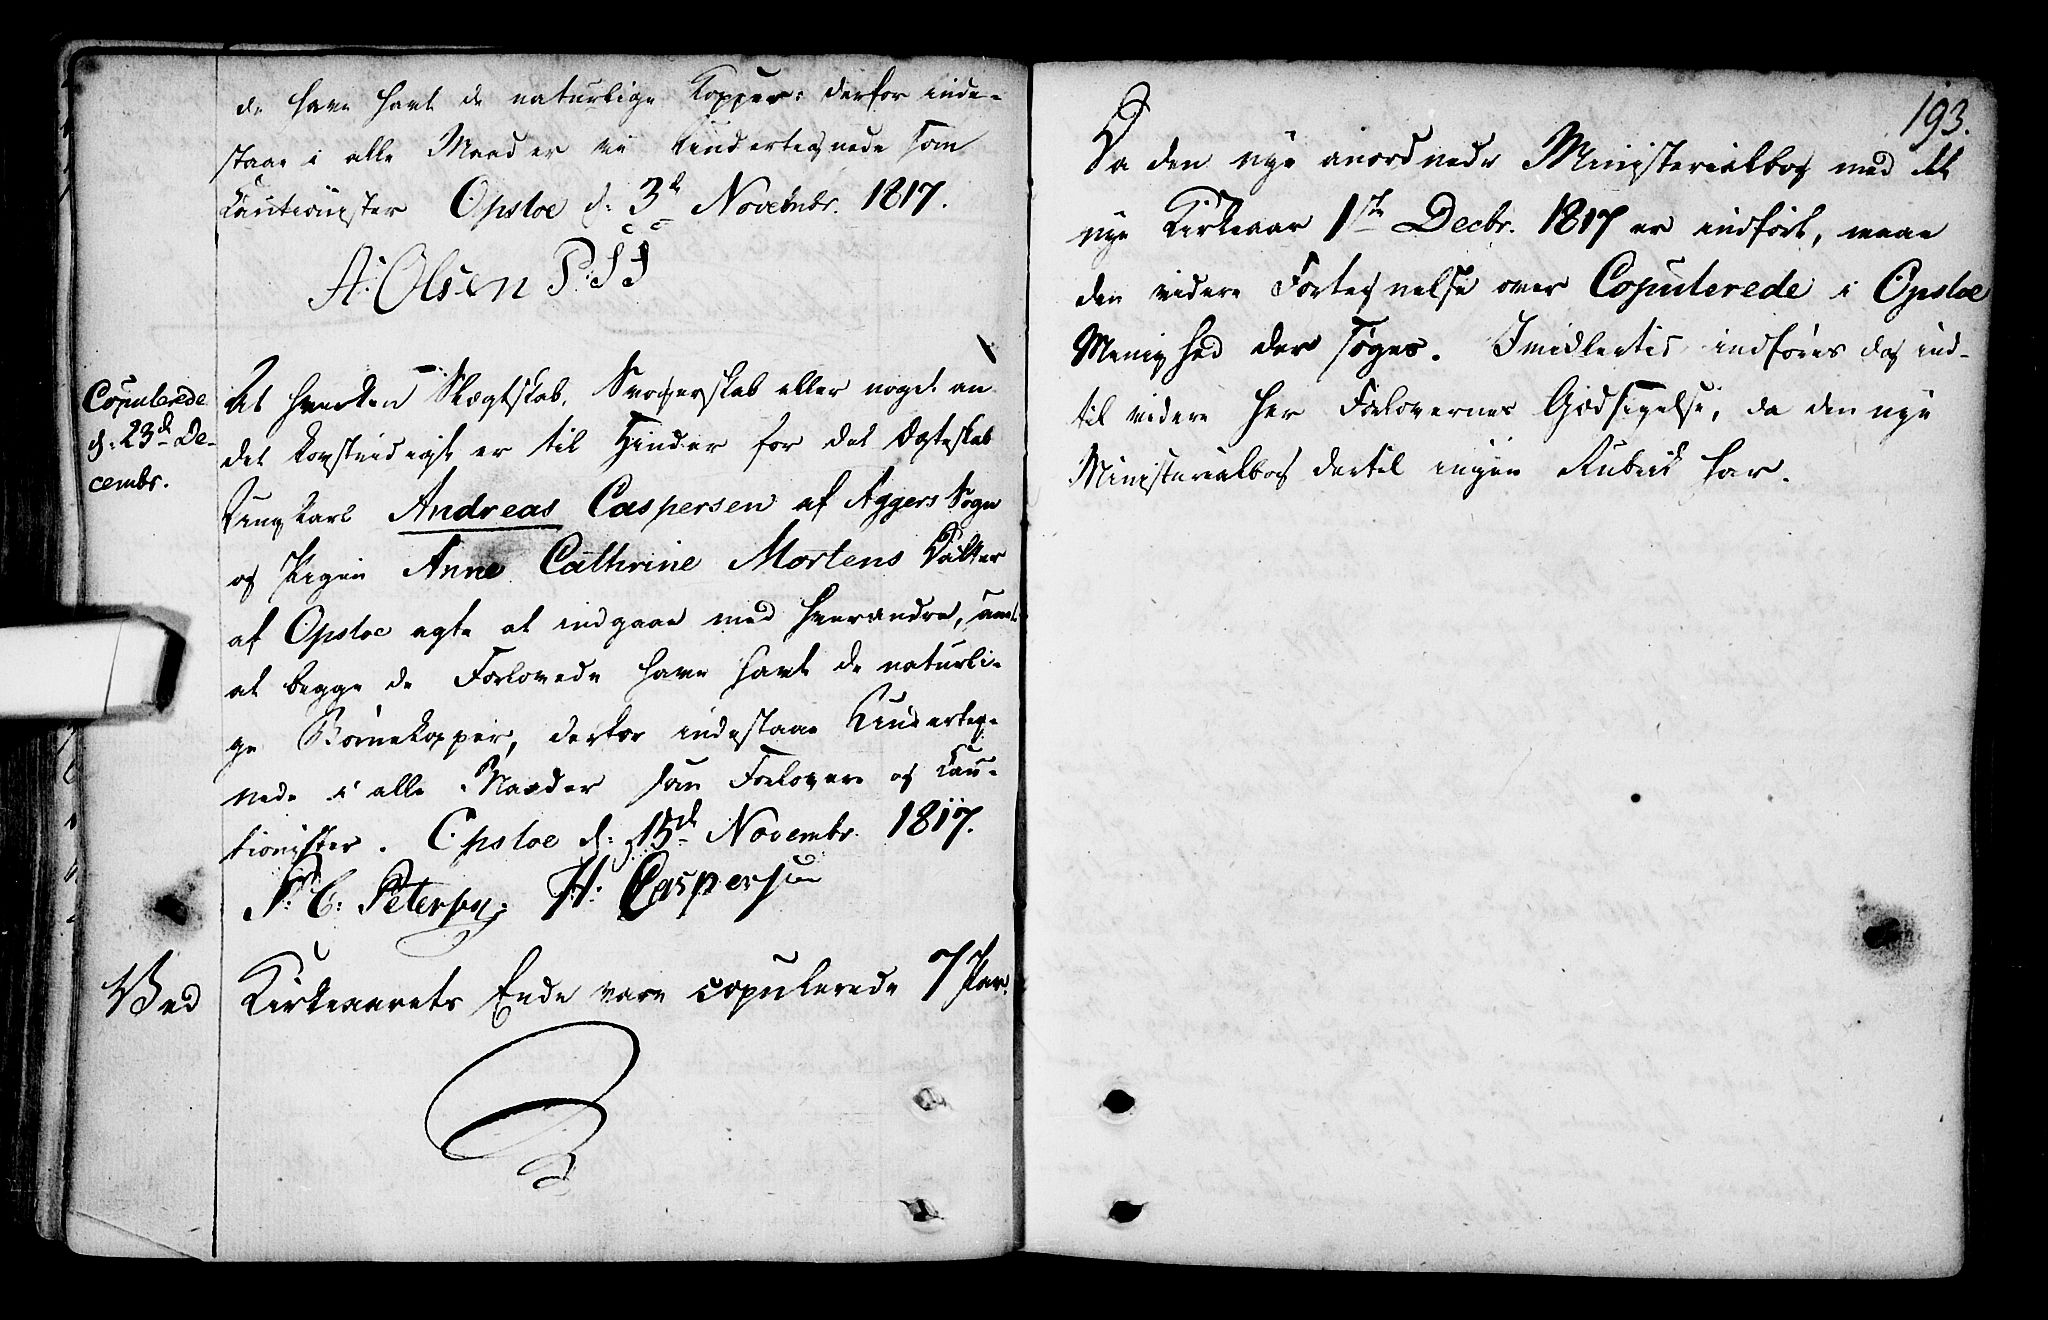 de have havt de naturlige Kopper: derfor inde-
staae i alle Maader vi Undertegnede som
Cautionister Opsloe d: 3de Novembr. 1817.
A: Olsen
Copulerede
d: 23de De-
cembr.
At hverken Slægtskab, Svogerskab eller noget an
det lovstridigt er til Hinder for det Ægteskab
Ungkarl Andreas Caspersen af Aggers Sogn
og Pigen Anne Cathrine Mortens Datter
af Opsloe agte at indgaae med hverandre, samt
at begge de Forlovede have havt de naturli-
ge Börnekopper, derfor indestaae Underteg-
nede i alle Maader som Forlovere og Cau-
tionister. Opsloe d: 15de Novembr. 1817.
P: C: Petersen, H: Caspersen
Ved Kirkeaarets Ende vare copulerede 7 Par.
193.
Da den nye anordnede Ministerialbog med det
nye Kirkeaar 1ste Decbr. 1817 er indfört, maae
den videre Fortegnelse over Copulerede i Opsloe
Menighed der söges. Imidlertid indföres dog ind-
til videre her Forlovernes Godsigelse, da den nye
Ministerialbog dertil ingen Rubrik har.